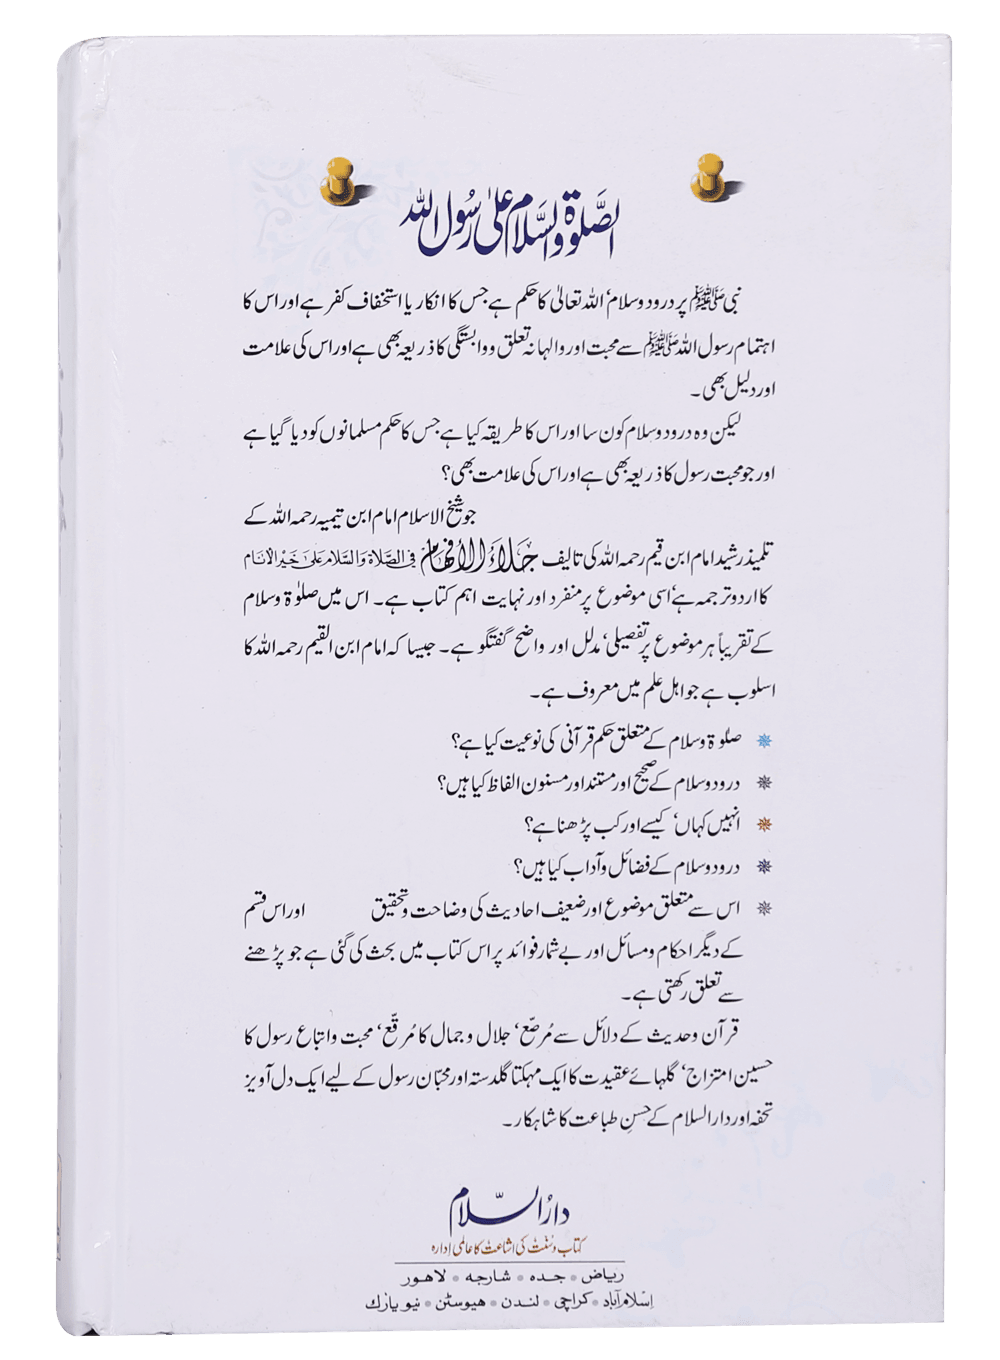 الصلوٰۃ والسلام علیٰ رسول اللہ
نبی ﷺ پر درود و سلام‘ اللہ تعالیٰ کا حکم ہے جس کا انکار یا استخفاف کفر ہے اور اس کا
اہتمام رسول اللہ ﷺ سے محبت اور والہانہ تعلق و وابستگی کا ذریعہ بھی ہے اور اس کی علامت
اور دلیل بھی۔
لیکن وہ درود و سلام کون سا اور اس کا طریقہ کیا ہے جس کا حکم مسلمانوں کو دیا گیا ہے
اور جو محبت رسول کا ذریعہ بھی ہے اور اس کی علامت بھی؟
جو شیخ الاسلام امام ابن تیمیہ رحمہ اللہ کے
تلمیذ رشید امام ابن قیم رحمہ اللہ کی تالیف جلاء الأفہام في الصَّلاة وَالسَّلام عَلیٰ خَيْر الأنام
کا اردو ترجمہ ہے‘ اسی موضوع پر منفرد اور نہایت اہم کتاب ہے۔ اس میں صلوٰۃ و سلام
کے تقریباً ہر موضوع پر تفصیلی‘ مدلل اور واضح گفتگو ہے۔ جیسا کہ امام ابن القیم رحمہ اللہ کا
اسلوب ہے جو اہل علم میں معروف ہے۔
صلوٰۃ و سلام کے متعلق حکم قرآنی کی نوعیت کیا ہے؟
درود و سلام کے صحیح اور مستند اور مسنون الفاظ کیا ہیں؟
انہیں کہاں‘ کیسے اور کب پڑھنا ہے؟
درود و سلام کے فضائل و آداب کیا ہیں؟
اس سے متعلق موضوع اور ضعیف احادیث کی وضاحت و تحقیق اور اس قسم
کے دیگر احکام و مسائل اور بے شمار فوائد پر اس کتاب میں بحث کی گئی ہے جو پڑھنے
سے تعلق رکھتی ہے۔
قرآن و حدیث کے دلائل سے مُرصّع‘ جلال و جمال کا مُرقّع‘ محبت و اتباع رسول کا
حسین امتزاج‘ گلہائے عقیدت کا ایک مہکتا گلدستہ اور محبّان رسول کے لیے ایک دل آویز
تحفہ اور دارالسلام کے حسنِ طباعت کا شاہکار۔
دارُالسّلام
کتاب و سنّت کی اشاعت کا عالمی ادارہ
ریاض • جدہ • شارجہ • لاہور
اِسلام آباد • کراچی • لندن • ہیوسٹن • نیو یارک